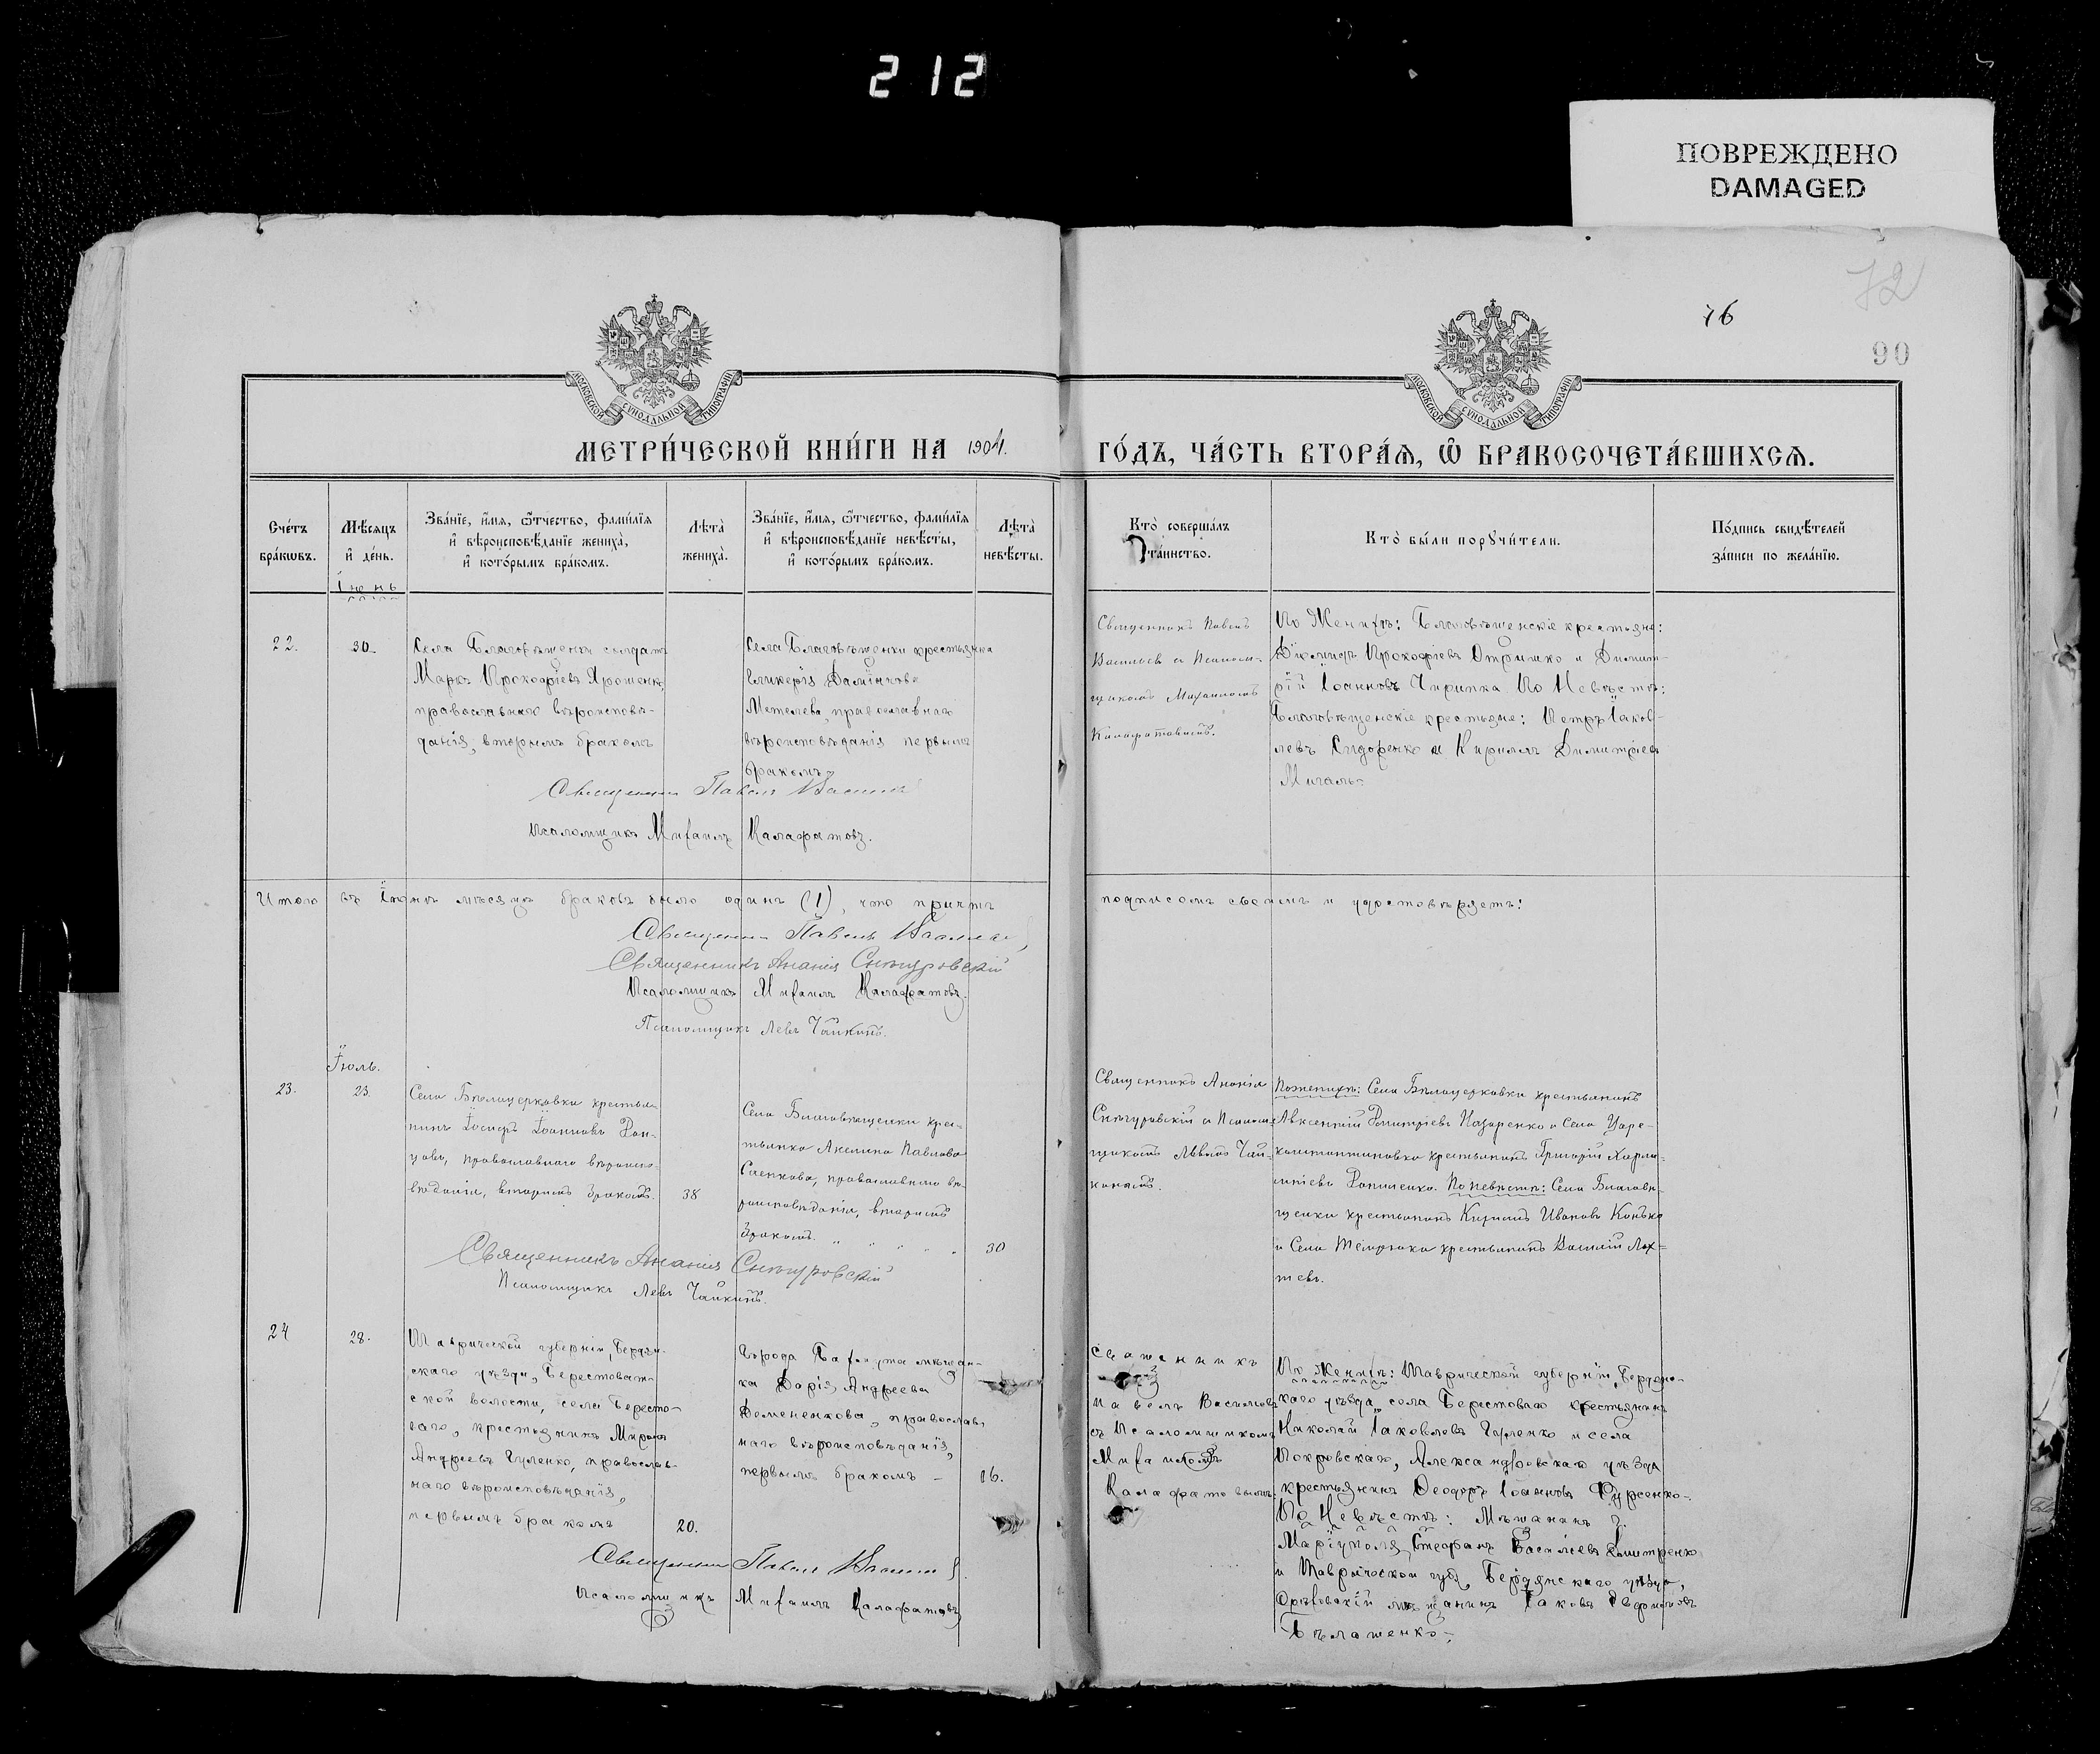 212
ПОВРЕЖДЕНО
DAMAGED
72
76
90
МОСКОВСКОЙ СУНОДАЛЬНОЙ ТИПОГРАФІИ
МОСКОВСКОЙ СУНОДАЛЬНОЙ ТИПОГРАФІИ
МЕТРИ́ЧЕСКОЙ КНИ́ГИ НА 1904.
ГО́ДЪ, ЧА́СТЬ ВТОРА́Я, Ѿ БРАКОСОЧЕТА́ВШИХСѦ.
Сче́тъ бра́кωвъ.
Мѣ́сяцъ и҆ де́нь.
Зва́нїе, и҆́мя, ѻ҆́тчество, фами́лїя и҆ вѣроисповѣ́данїе жениха̀, и҆ кото́рымъ бра́комъ.
Лѣ́та жениха̀.
Зва́нїе, и҆́мя, ѻ҆́тчество, фами́лїя и҆ вѣроисповѣ́данїе невѣ́сты, и҆ кото́рымъ бра́комъ.
Лѣ́та невѣ́сты.
Кто̀ соверша́лъ та́инство.
Кто̀ бы́ли порꙋчи́тели.
По́дпись свидѣ́телей за́писи по жела́нїю.
Іюнь
22.
30.
Села Благовѣщенки солдатъ
Маркъ Прокофіевъ Ярошенко,
православнаго вѣроисповѣ-
данія, вторымъ бракомъ
Села Благовѣщенки крестьянка
Гликерія
православнаго
вѣроисповѣданія первымъ
бракомъ
Священникъ Павелъ
Васильевъ съ Псалом-
щикомъ Михаиломъ
Калафатовымъ.
По Женихѣ: Благовѣщенскіе крестьяне:
Діомидъ Прокофіевъ и Димит-
рій Іоанновъ Чирипка. По Невѣстѣ:
Благовѣщенскіе крестьяне: Петръ Іаков-
левъ Сидоренко и Кириллъ Димитріевъ
Священникъ Павелъ Васильевъ
Псаломщикъ Михаилъ Калафатовъ.
Итого въ Іюнѣ мѣсяцѣ браковъ было одинъ (1), что причтъ
подписомъ своимъ и удостовѣряетъ:
Священникъ Павелъ Васильевъ
Священникъ Ананія Снѣгуровскій
Псаломщикъ Михаилъ Калафатовъ.
Псаломщикъ Левъ Чайкинъ.
Іюль.
23.
23.
Села Бѣлоцерковки крестья-
нинъ Іосифъ Іоанновъ Дон-
цовъ, православнаго вѣроиспо-
вѣданія, вторымъ бракомъ.
38
Села Благовѣщенки крес-
тьянка Акилина Павлова
Слепкова, православнаго вѣ-
роисповѣданія, вторымъ
бракомъ. " " " " "
30
Священникъ Ананія
Снѣгуровскій съ Псалом-
щикомъ Львомъ Чай-
кинымъ.
По женихѣ: Села Бѣлоцерковки крестьянинъ
Авксентій Димитріевъ Назаренко и Села Царе-
константиновки крестьянинъ Григорій Харла-
мпіевъ. По невѣстѣ: Села Благовѣ-
щенки крестьянинъ Кириллъ Ивановъ Конько
и Села Темрюка крестьянинъ Василій Лах-
тевъ.
Священникъ Ананія Снѣгуровскій
Псаломщикъ Левъ Чайкинъ.
24
28.
Таврической губерніи, Бердян-
скаго уѣзда, Берестоват-
ской волости, села Бересто-
ваго, крестьянинъ Миронъ
Андреевъ Гуленко, православ-
наго вѣроисповѣданія,
первымъ бракомъ
20.
Города Бахмута мѣщан-
ка Дарія Андреева
Деменкова, православ-
наго вѣроисповѣданія,
первымъ бракомъ –
16.
Священникъ
Павелъ Васильевъ
съ Псаломщикомъ
Михаиломъ
Калафатовымъ
По Женихѣ: Таврической губерніи, Бердянс-
каго уѣзда, села Берестоваго крестьянинъ
Николай Іаковлевъ Гуленко и села
Покровскаго, Александровскаго уѣзда
крестьянинъ Ѳеодоръ Іоанновъ Фурсенко.
По Невѣстѣ: Мѣщанинъ г.
Маріуполя Стефанъ Васильевъ Дмитренко
и Таврической губ. Бердянскаго уѣзда,
Орѣховскій мѣщанинъ Іаковъ
Бѣлашенко.
Священникъ Павелъ Васильевъ
Псаломщикъ Михаилъ Калафатовъ